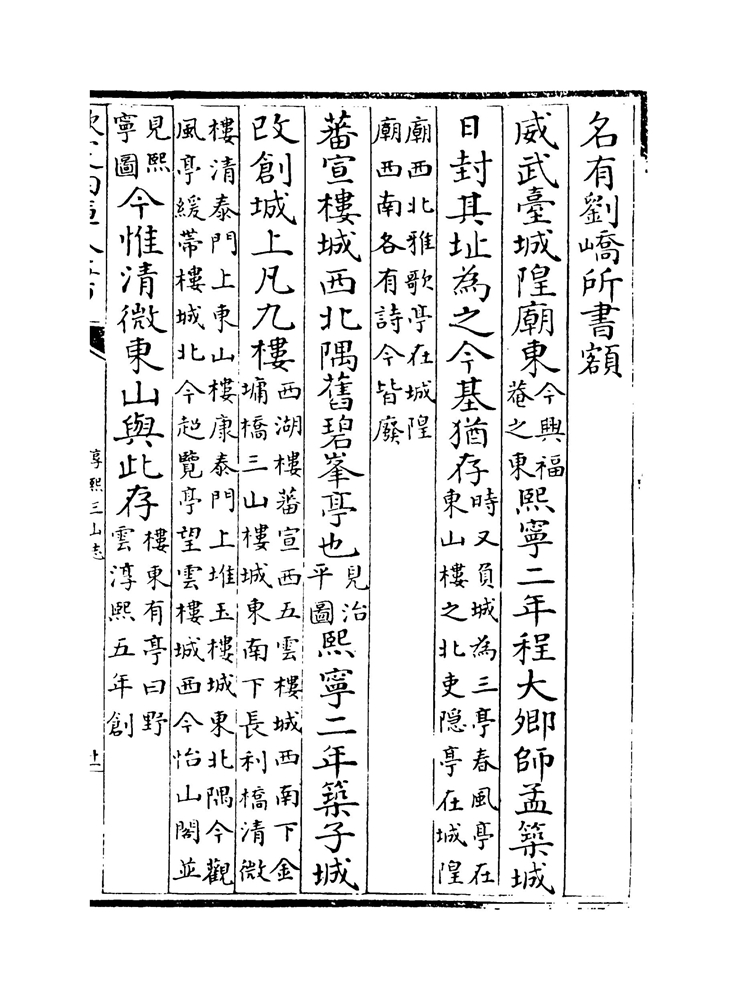 名有劉嶠所書額
威武臺城隍廟東今興福菴之東熙寧二年程大卿師孟築城
日封其址為之今基猶存時又負城為三亭春風亭在東山樓之北吏隠亭在城隍
廟西北雅歌亭在城隍廟西南各有詩今皆廢
蕃宣樓城西北隅舊碧峯亭也見治平圖熙寧二年築子城
改創城上凡九樓西湖樓蕃宣西五雲樓城西南下金墉橋三山樓城東南下長利橋清微
樓清泰門上東山樓康泰門上堆玉樓城東北隅今觀風亭緩帶樓城北今超覽亭望雲樓城西今怡山閣並
見熙寧圖今惟清微東山與此存樓東有亭曰野雲淳熙五年創
淳熙三山志